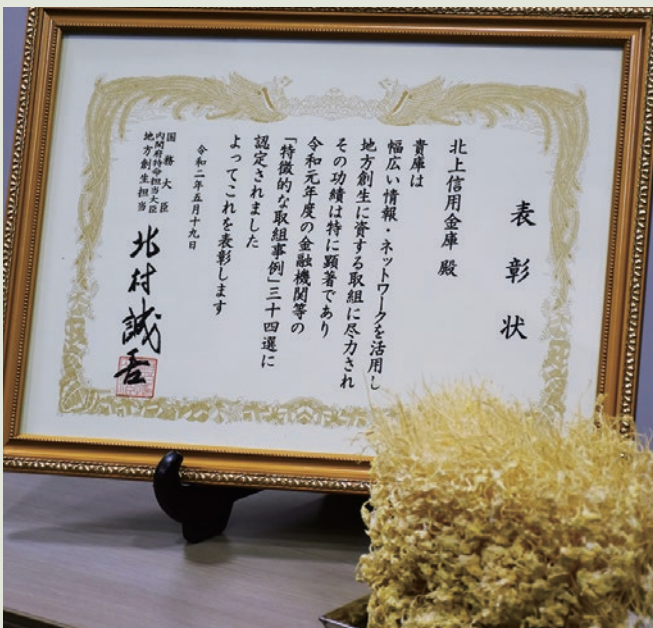 表彰状
北上信用金庫 殿
貴庫は
幅広い情報・ネットワークを活用し
地方創生に資する取組に尽力され
その功績は特に顕著であり
令和元年度の金融機関等の
「特徴的な取組事例」三十四選に
認定されました
よってこれを表彰します
令和二年五月十九日
国務大臣
内閣府特命担当大臣
地方創生担当
北村誠吾